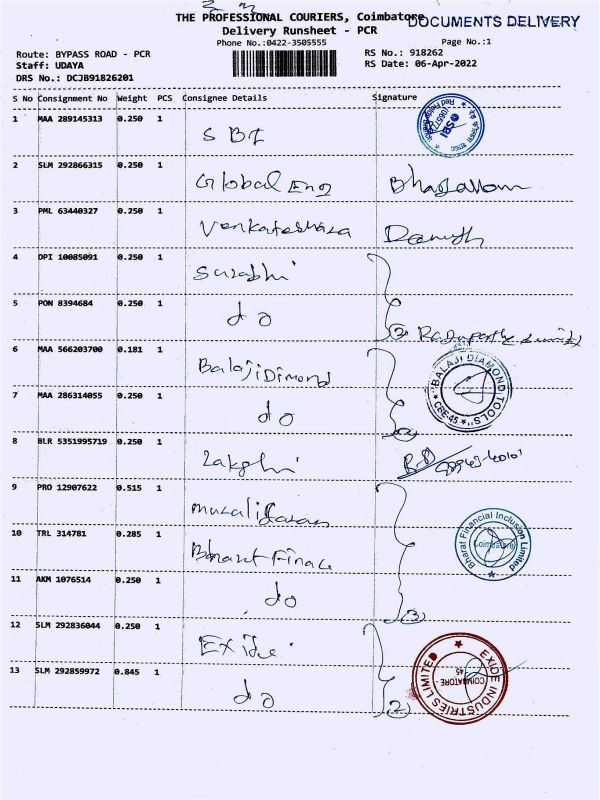 THE PROFESSIONAL COURIERS, Coimbatore
DOCUMENTS DELIVERY
Delivery Runsheet - PCR
Phone No.:0422-3505555
Page No.:1
Route: BYPASS ROAD - PCR
RS No.: 918262
Staff: UDAYA
RS Date: 06-Apr-2022
DRS No.: DCJB91826201
S No Consignment No Weight PCS Consignee Details Signature
1 MAA 289145313 0.250 1
SBI
SBI
2 SLM 292866315 0.250 1
Global Eng
3 PML 63440327 0.250 1
Venkateshara
4 DPI 10085091 0.250 1
Surabhi
5 PON 8394684 0.250 1
do
(2)
6 MAA 566203700 0.181 1
Balaji Dimond
"BALAJI DIAMOND TOOLS"
CBE-45
7 MAA 286314055 0.250 1
do
(2)
8 BLR 5351995719 0.250 1
9 PRO 12907622 0.515 1
10 TRL 314781 0.285 1
Bharat Finac
Bharat Financial Inclusion Limited
Coimbatore
11 AKM 1076514 0.250 1
do
(3)
12 SLM 292836044 0.250 1
Exide
EXIDE INDUSTRIES LIMITED
COIMBATORE - 45
13 SLM 292859972 0.845 1
do
(2)